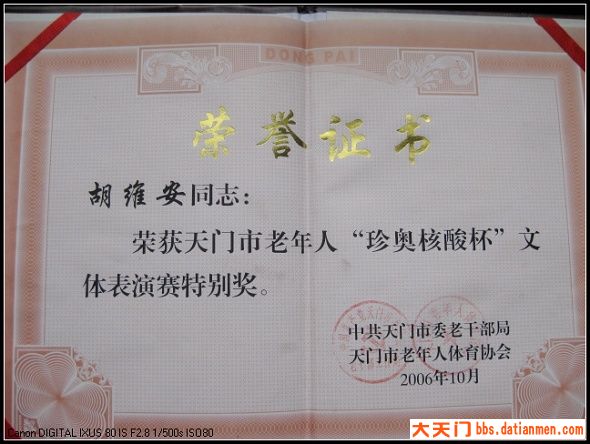 DONG PAI
荣誉证书
胡维安同志：
荣获天门市老年人“珍奥核酸杯”文
体表演赛特别奖。
中共天门市委老干部局
天门市老年人体育协会
2006年10月
Canon DIGITAL IXUS 80 IS F2.8 1/500s ISO80
大天门 bbs.datianmen.com